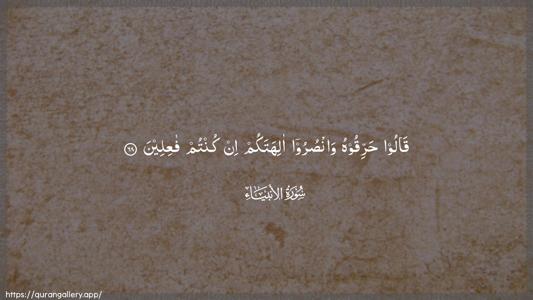 قَالُوْا حَرِّقُوْهُ وَانْصُرُوْٓا اٰلِهَتَكُمْ اِنْ كُنْتُمْ فٰعِلِيْنَ
سُوْرَةُ الأنبيَاء
https://qurangallery.app/